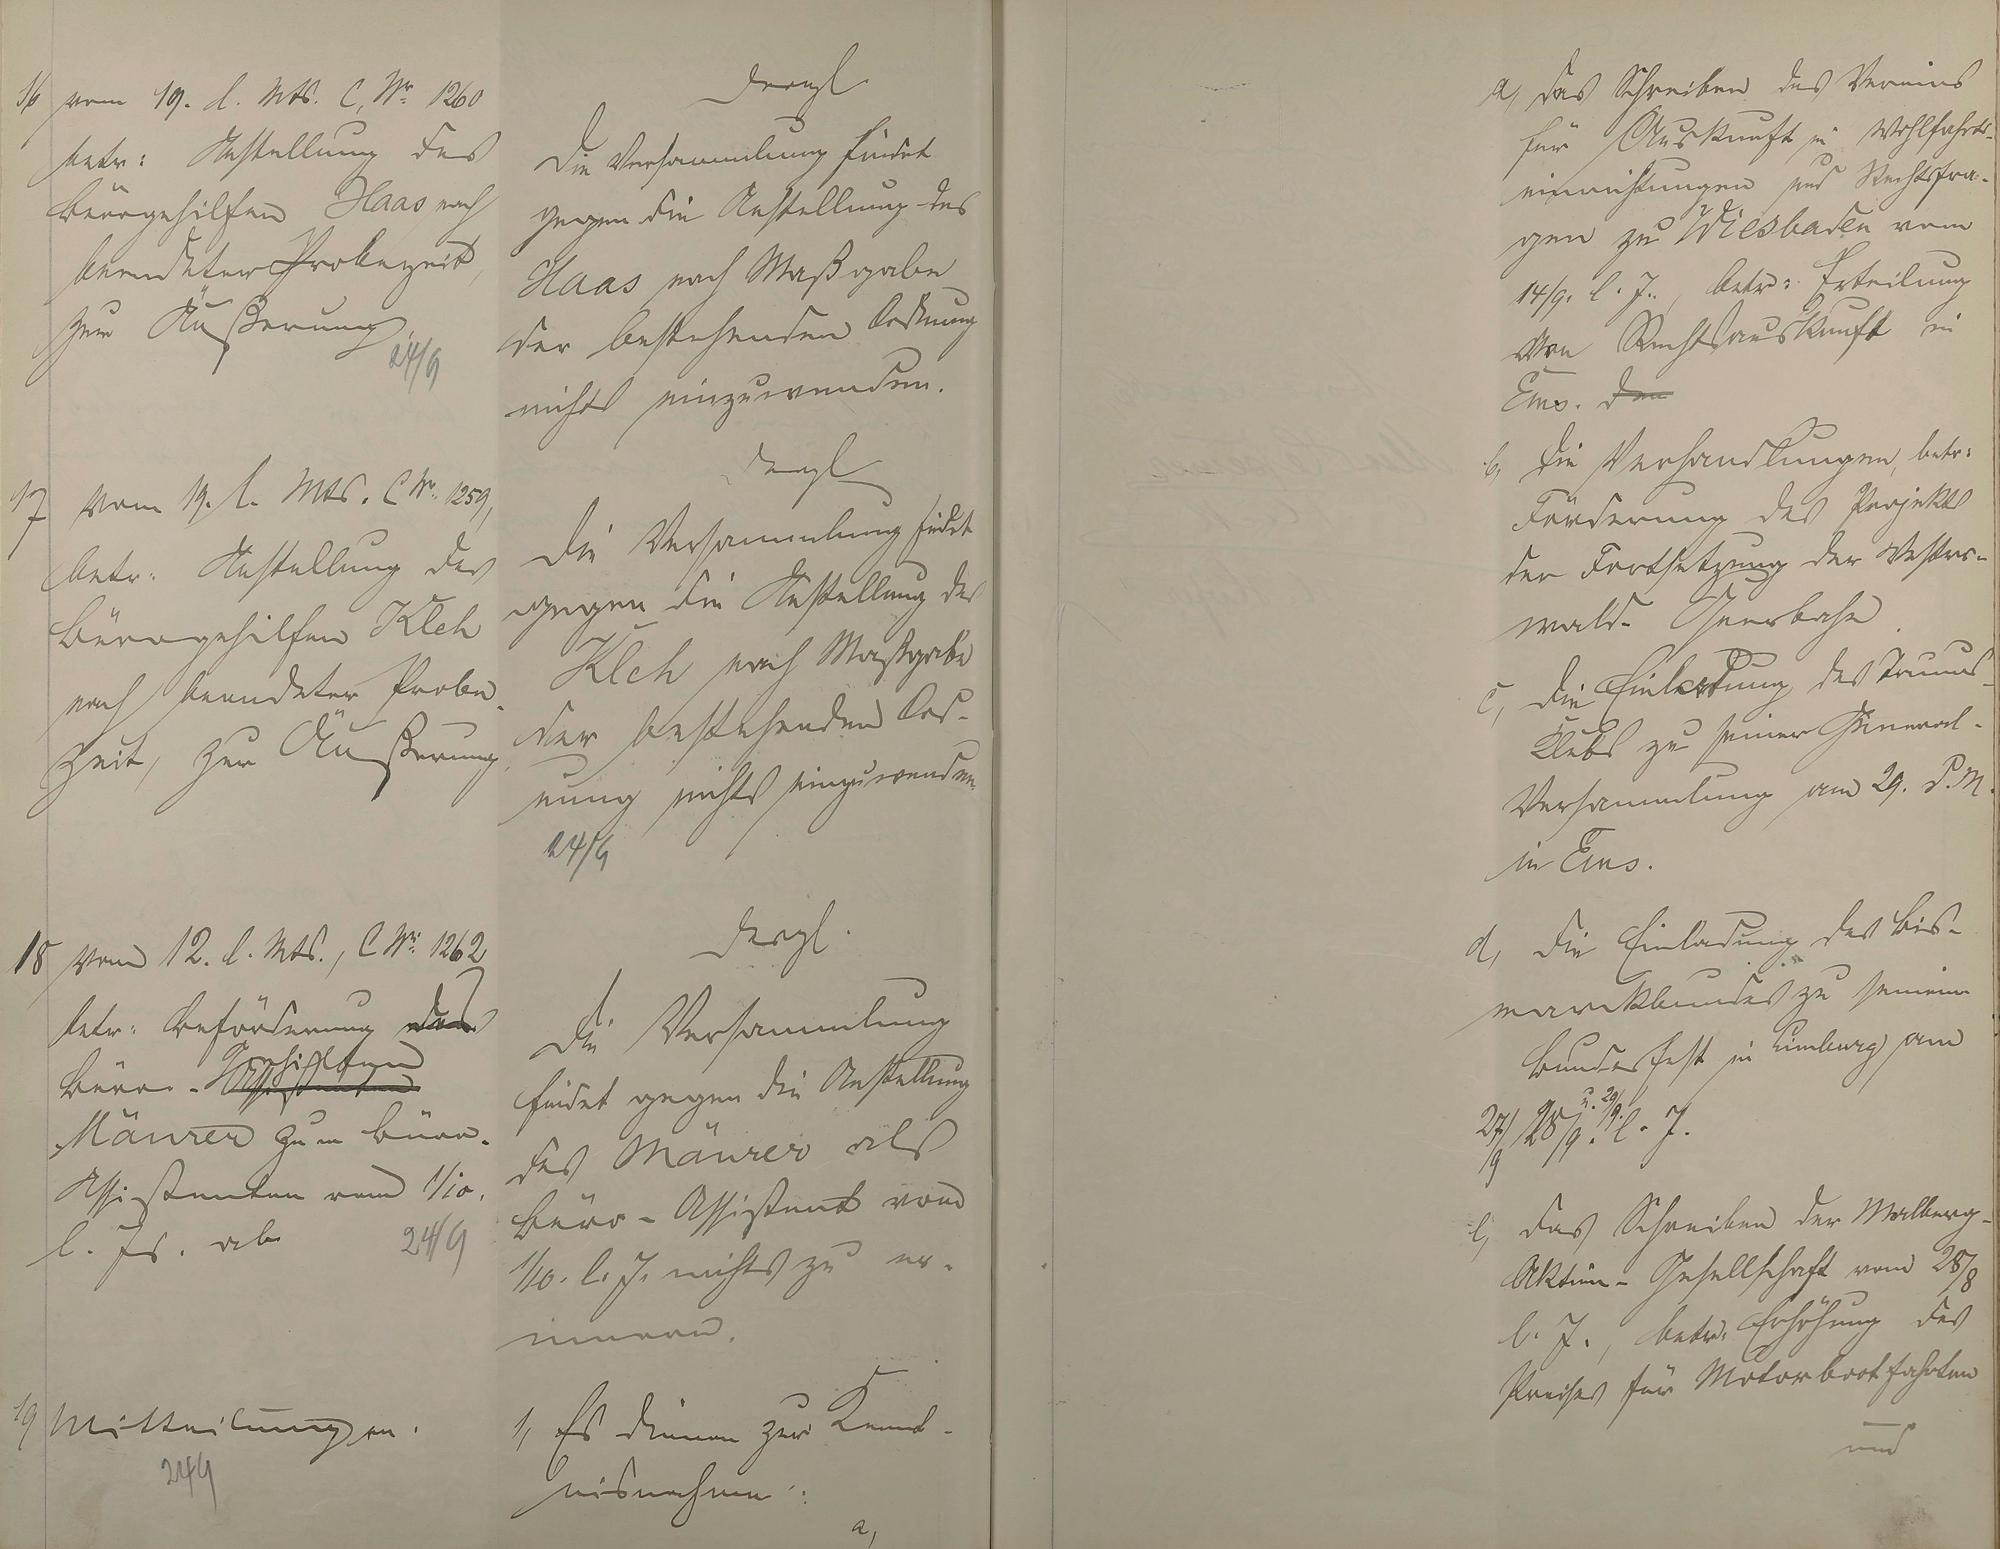 16 vom 19. d. Mts. C. Nr. 1260
betr: Anstellung des
Bürogehilfen Haas nach
beendeter Probezeit,
zur Äußerung.
24/9
dergl
Die Versammlung findet
gegen die Anstellung des
Haas nach Maßgabe
der bestehenden Ordnung
nichts einzuwenden.
17 vom 19. l. Mts. C Nr. 1259,
betr: Anstellung des
Bürogehilfen Kleh
nach beendeter Probe-
zeit, zur Äußerung.
dergl
Die Versammlung findet
gegen die Anstellung des
Kleh nach Maßgabe
der bestehenden Ord-
nung nichts einzuwenden.
24/9
18 vom 12. l. Mts., C Nr. 1262
betr: Beförderung des
Büro-Gehilfen
Mäurer zum Büro-
Assistenten vom 1/10.
l. Js. ab
24/9
dergl.
Die Versammlung
findet gegen die Anstellung
des Mäurer als
Büro-Assistent vom
1/10. l. J. nichts zu er-
innern.
19 Mitteilungen.
24/9
1, Es dienen zur Kennt-
nisnahme:
a,
a, das Schreiben des Vereins
für Auskunft in Wohlfahrts-
einrichtungen und Rechtsfra-
gen zu Wiesbaden vom
14/9. l. J., betr: Erteilung
von Rechtsauskunft in
Ems. den
b, die Verhandlungen, betr:
Förderung des Projekts
der Fortsetzung der Wester-
wald-Querbahn
c, die Einladung des Taunus-
Klubs zu seiner General-
Versammlung am 29. d. M.
in Ems.
d, die Einladung des Bis-
marckbundes zu seinem
Bundesfest in Limburg am
27/9 28/9. u. 29/9. l. J.
e, das Schreiben der Malberg-
Aktien-Gesellschaft vom 28/8
l. J., betr: Erhöhung des
Preises für Motorbootfahrten
und